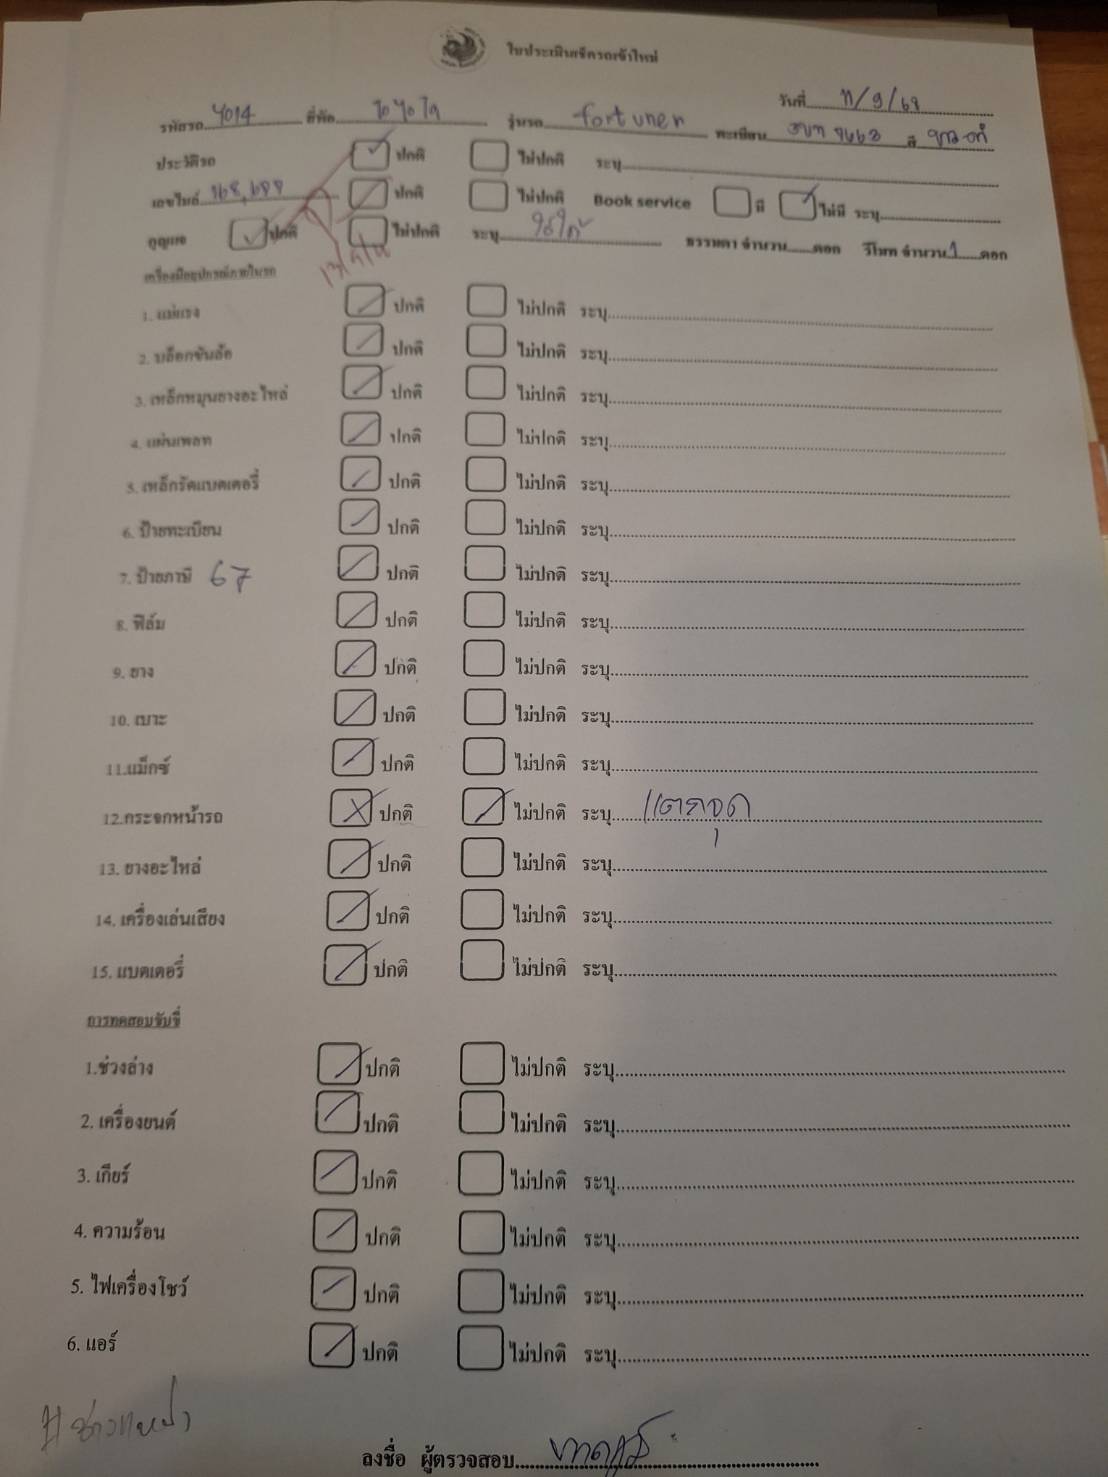 ใบประเมินเช็ครถเข้าใหม่
วันที่ 11/9/69
รหัสรถ 4014 ยี่ห้อ โตโยโต้ รุ่นรถ fortuner ทะเบียน 9663 สี
ประวัติรถ ปกติ ไม่ปกติ ระบุ
เลขไมล์ 168,688 ปกติ ไม่ปกติ Book service มี ไม่มี ระบุ
กุญแจ ปกติ ไม่ปกติ ระบุ ใช้ได้ ธรรมดา จำนวน ดอก รีโมท จำนวน 1 ดอก
เครื่องมืออุปกรณ์ภายในรถ
1. แม่แรง ปกติ ไม่ปกติ ระบุ
2. บล็อกขันล้อ ปกติ ไม่ปกติ ระบุ
3. เหล็กหมุนยางอะไหล่ ปกติ ไม่ปกติ ระบุ
4. แผ่นเพลท ปกติ ไม่ปกติ ระบุ
5. เหล็กรัดแบตเตอรี่ ปกติ ไม่ปกติ ระบุ
6. ป้ายทะเบียน ปกติ ไม่ปกติ ระบุ
7. ป้ายภาษี 67 ปกติ ไม่ปกติ ระบุ
8. ฟิล์ม ปกติ ไม่ปกติ ระบุ
9. ยาง ปกติ ไม่ปกติ ระบุ
10. เบาะ ปกติ ไม่ปกติ ระบุ
11.แม็กซ์ ปกติ ไม่ปกติ ระบุ
12.กระจกหน้ารถ ปกติ ไม่ปกติ ระบุ แตกจุด
13. ยางอะไหล่ ปกติ ไม่ปกติ ระบุ
14. เครื่องเล่นเสียง ปกติ ไม่ปกติ ระบุ
15. แบตเตอรี่ ปกติ ไม่ปกติ ระบุ
การทดสอบขับขี่
1.ช่วงล่าง ปกติ ไม่ปกติ ระบุ
2. เครื่องยนต์ ปกติ ไม่ปกติ ระบุ
3. เกียร์ ปกติ ไม่ปกติ ระบุ
4. ความร้อน ปกติ ไม่ปกติ ระบุ
5. ไฟเครื่องโชว์ ปกติ ไม่ปกติ ระบุ
6. แอร์ ปกติ ไม่ปกติ ระบุ
ลงชื่อ ผู้ตรวจสอบ